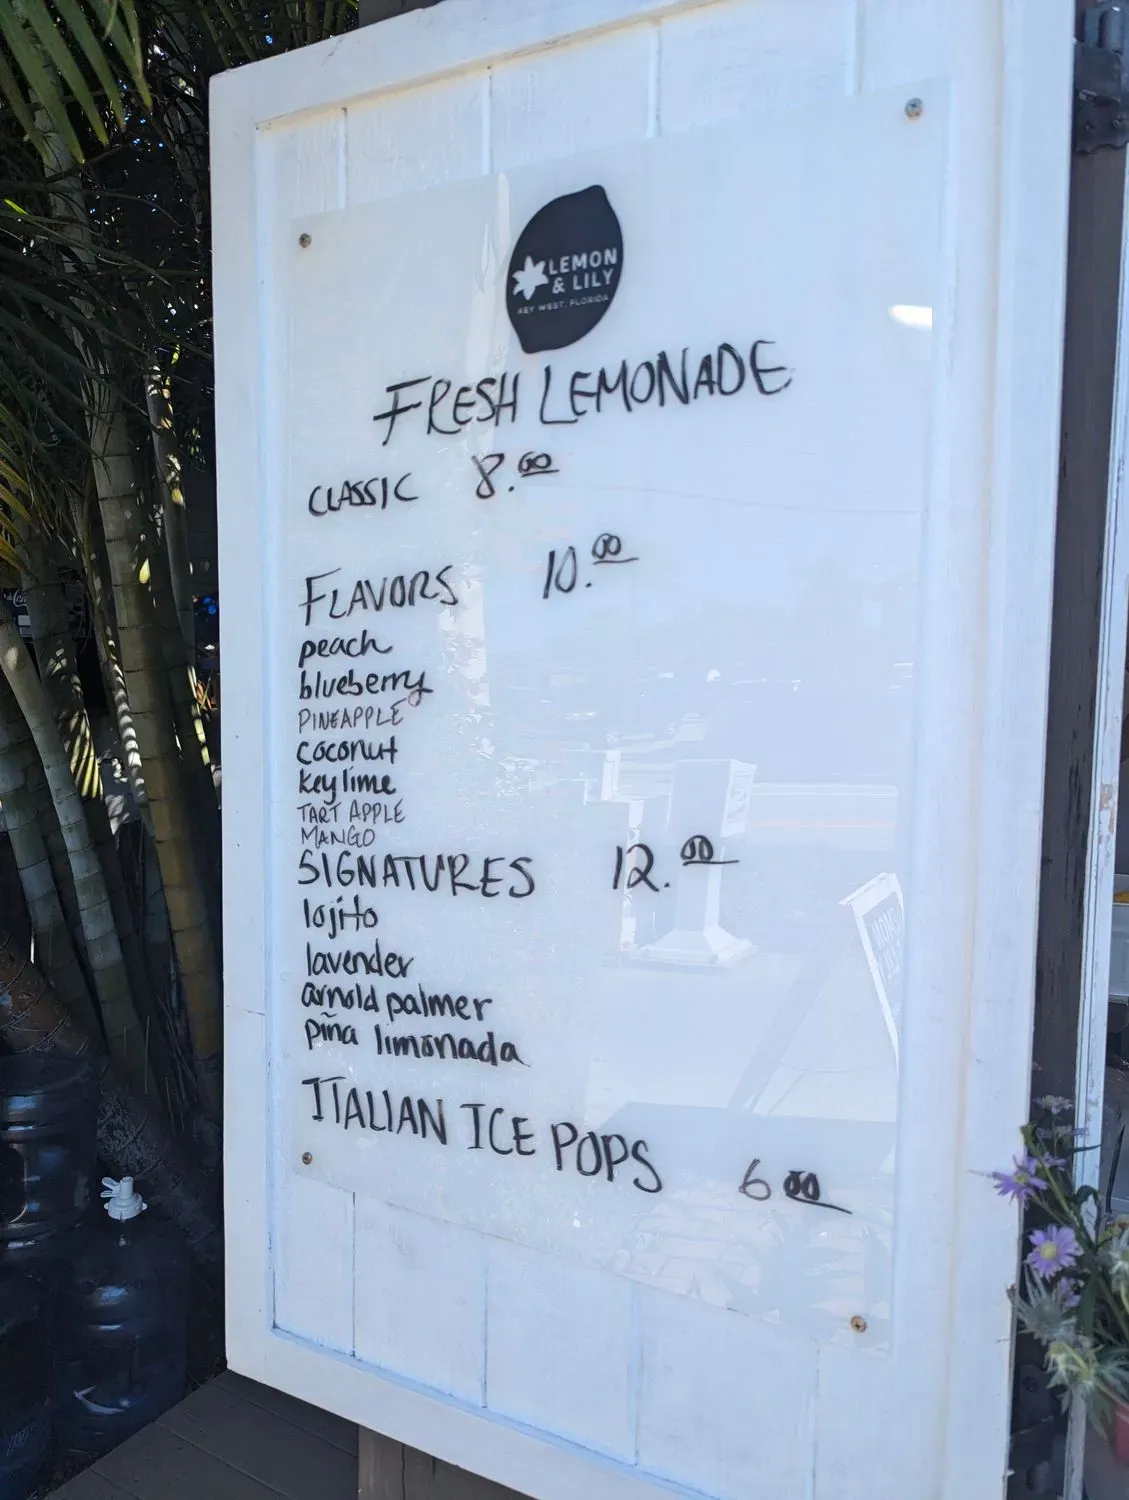 LEMON
& LILY
KEY WEST, FLORIDA
FRESH LEMONADE
CLASSIC 8.00
FLAVORS 10.00
peach
blueberry
PINEAPPLE
coconut
key lime
TART APPLE
MANGO
SIGNATURES 12.00
lojito
lavender
arnold palmer
piña limonada
ITALIAN ICE POPS 6 00